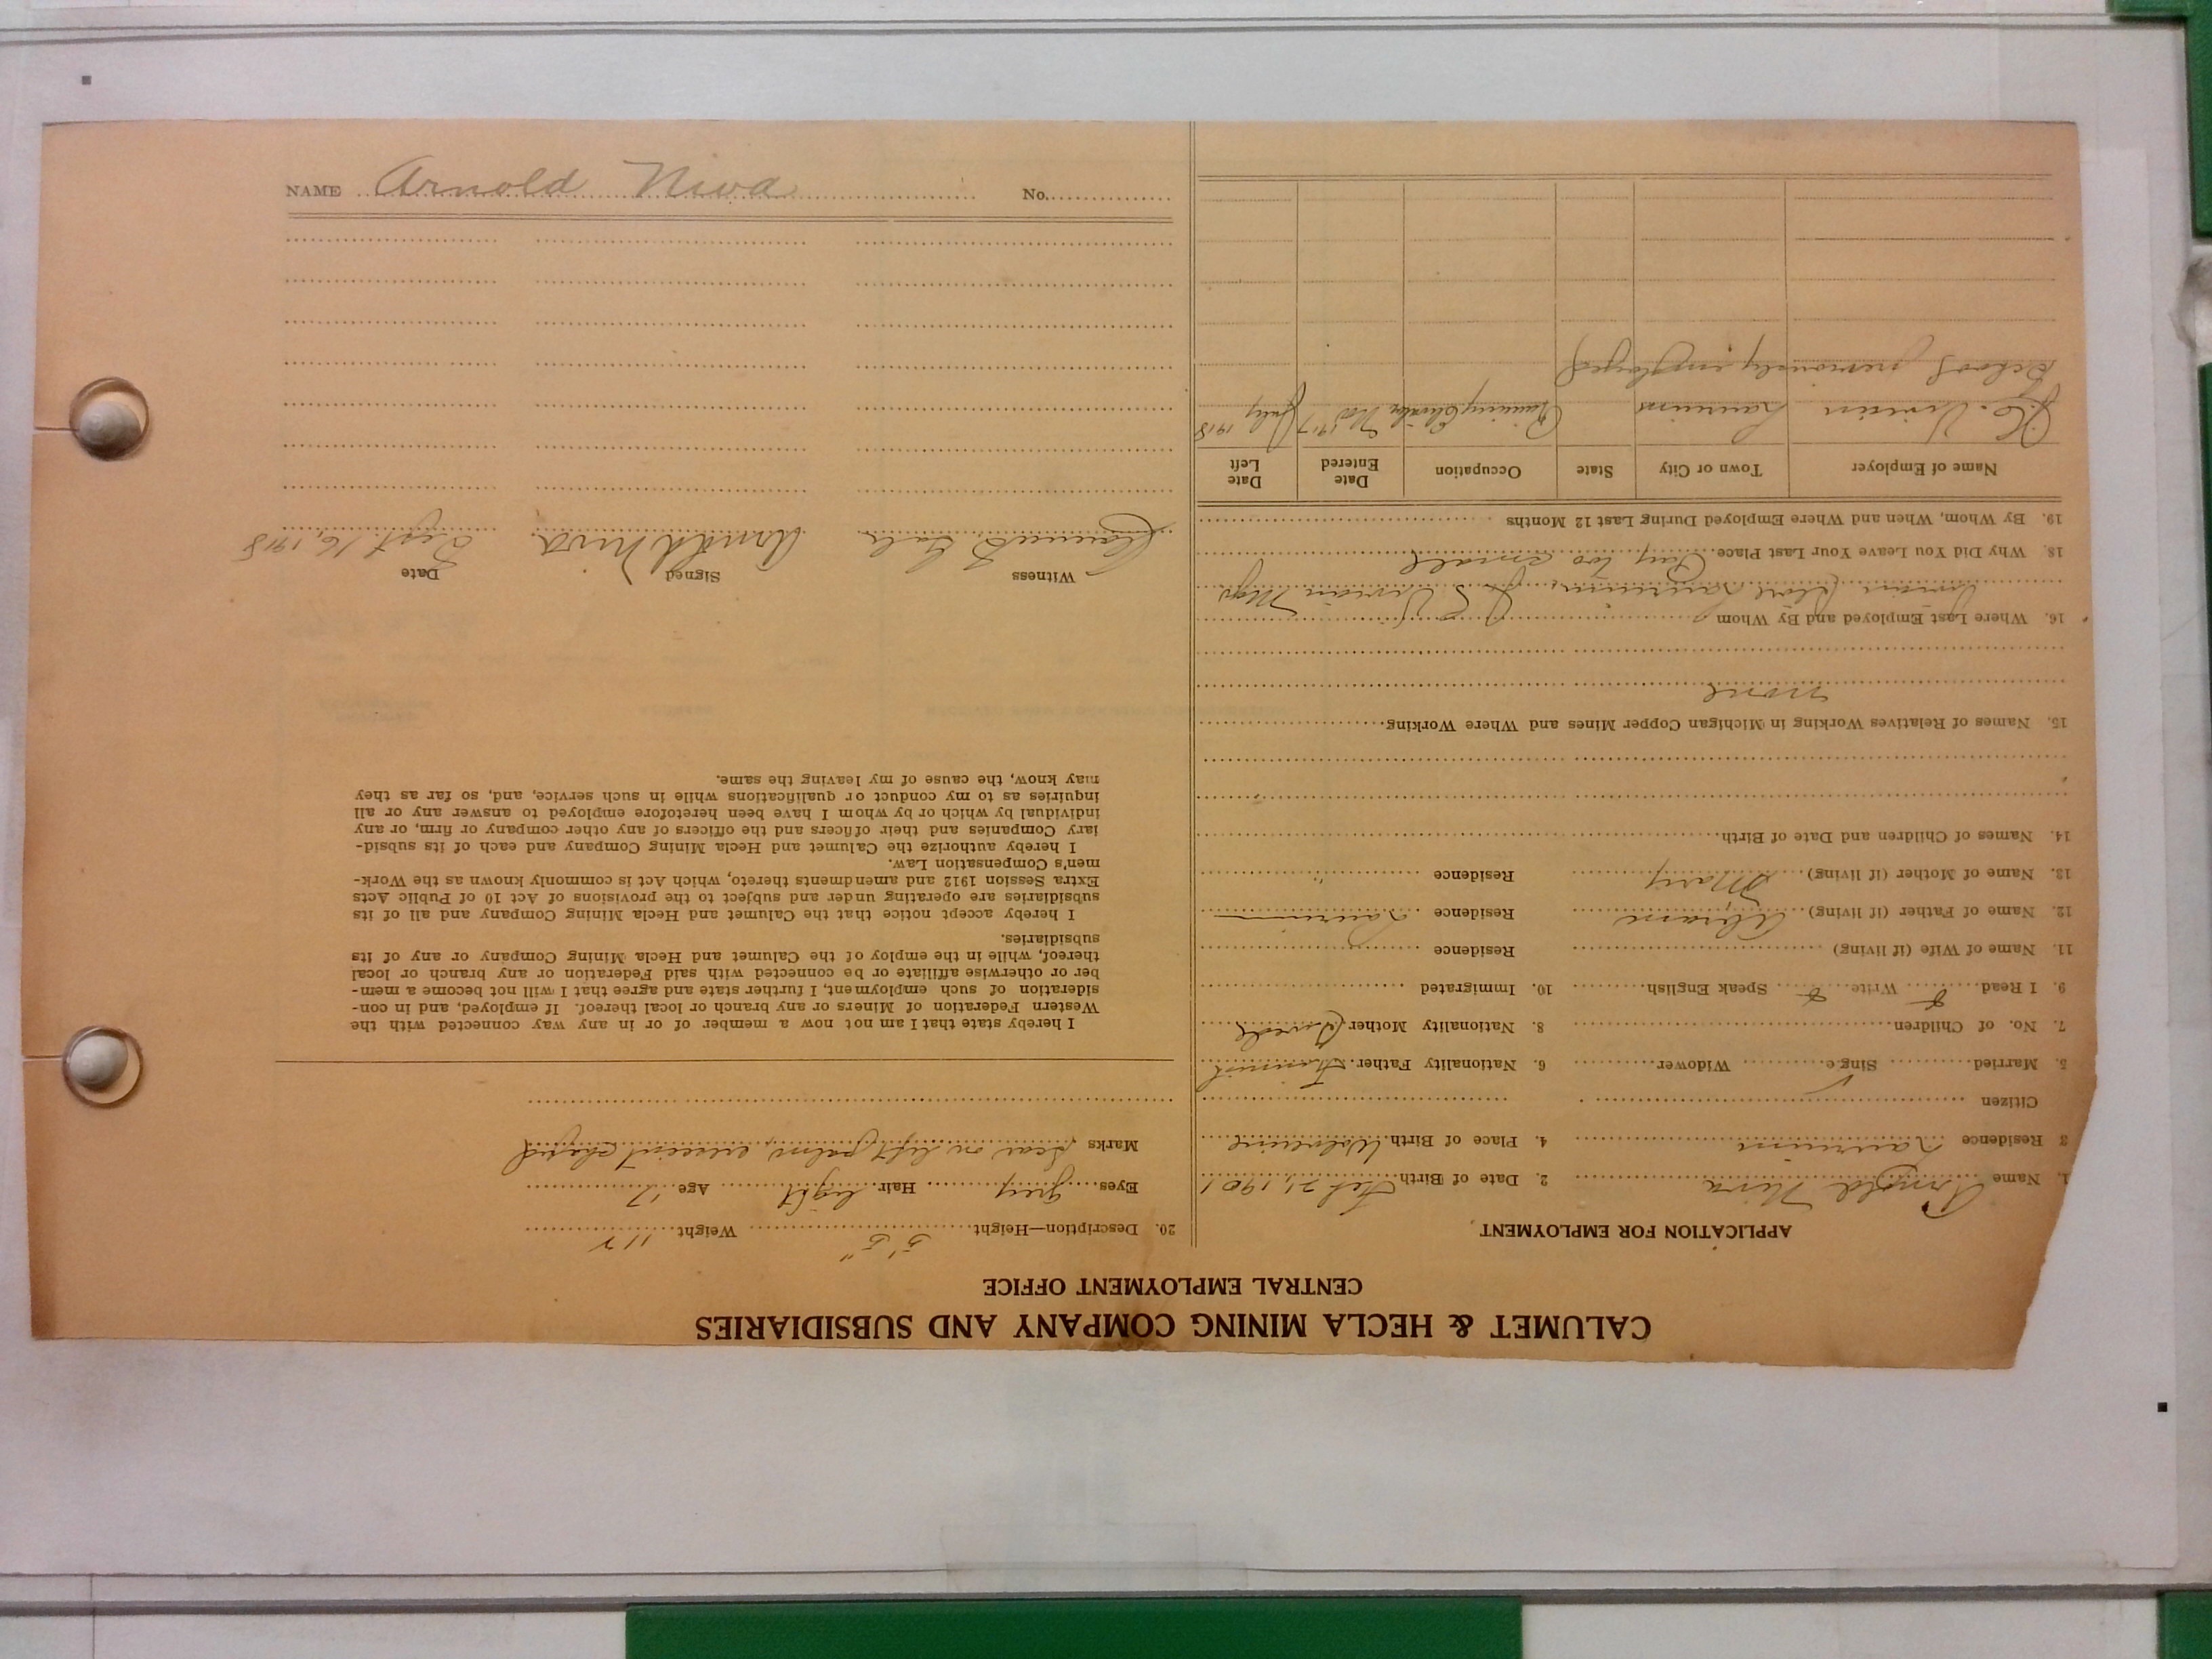 CALUMET & HECLA MINING COMPANY AND SUBSIDIARIES
CENTRAL EMPLOYMENT OFFICE
APPLICATION FOR EMPLOYMENT
1. Name Arnold Niva 2. Date of Birth Feb 21, 1901
3 Residence Laurium 4. Place of Birth Wolverine
Citizen
5. Married Single Widower 6. Nationality Father Finnish
7. No. of Children 8. Nationality Mother Swede
9. I Read Write Speak English 10. Immigrated
11. Name of Wife (if living) Residence
12. Name of Father (if living) Abram Residence Laurium
13. Name of Mother (if living) Mary Residence "
14. Names of Children and Date of Birth
15. Names of Relatives Working in Michigan Copper Mines and Where Working
none
16. Where Last Employed and By Whom
Vivian Store Laurium, J. S. Vivian Mgr
18. Why Did You Leave Your Last Place Pay too small
19. By Whom, When and Where Employed During Last 12 Months
Name of Employer Town or City State Occupation Date Entered Date Left
Vivian Laurium Running Elevator Nov 1917 July 1918
School previously employed
20. Description—Height 5' 5" Weight 118
Eyes grey Hair light Age 17
Marks Scar on left palm, crescent shaped
I hereby state that I am not now a member of or in any way connected with the
Western Federation of Miners or any branch or local thereof. If employed, and in con-
sideration of such employment, I further state and agree that I will not become a mem-
ber or otherwise affiliate or be connected with said Federation or any branch or local
thereof, while in the employ of the Calumet and Hecla Mining Company or any of its
subsidiaries.
I hereby accept notice that the Calumet and Hecla Mining Company and all of its
subsidiaries are operating under and subject to the provisions of Act 10 of Public Acts
Extra Session 1912 and amendments thereto, which Act is commonly known as the Work-
men's Compensation Law.
I hereby authorize the Calumet and Hecla Mining Company and each of its subsid-
iary Companies and their officers and the officers of any other company or firm, or any
individual by which or by whom I have been heretofore employed to answer any or all
inquiries as to my conduct or qualifications while in such service, and, so far as they
may know, the cause of my leaving the same.
Witness Signed Date
Arnold Niva Sept. 16, 1918
NAME Arnold Niva No.